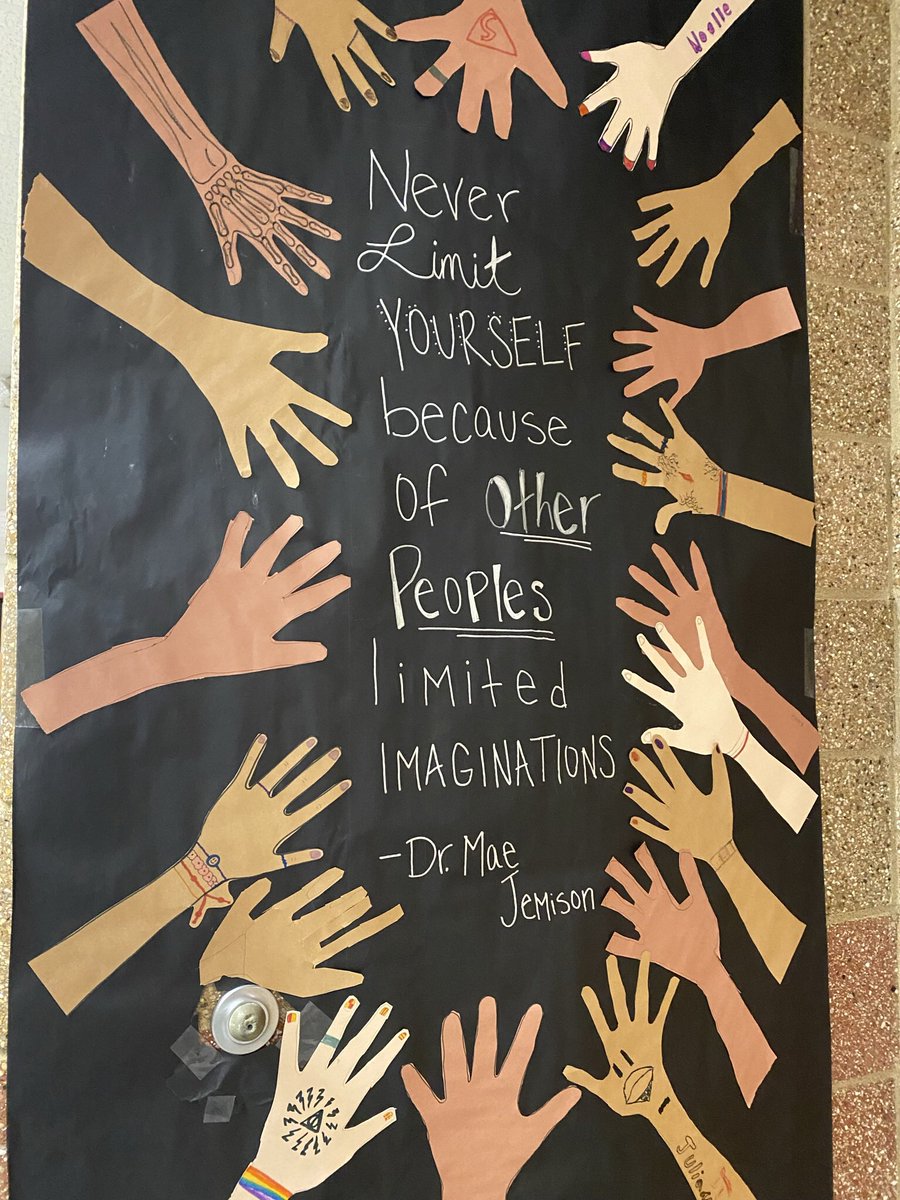 S
Noelle
Never
Limit
YOURSELF
because
of Other
Peoples
limited
IMAGINATIONS
-Dr. Mae
Jemison